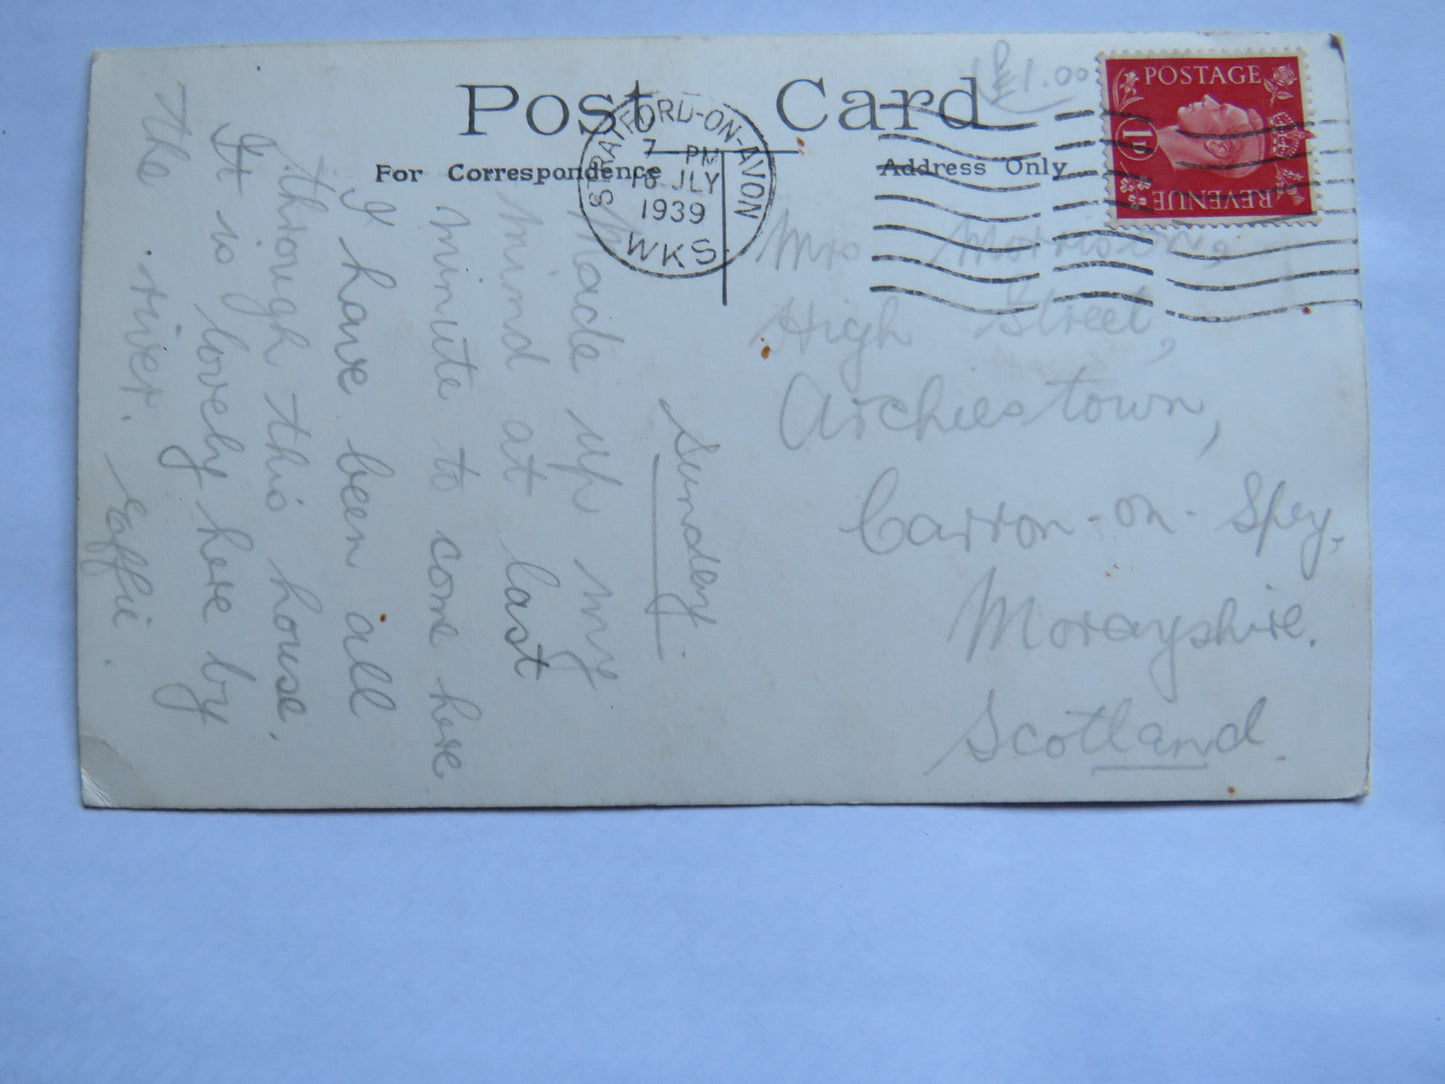 Post Card
£1.00
POSTAGE
1D
REVENUE
For Correspondence
Address Only
STRATFORD-ON-AVON
7 PM
JLY
1939
WKS.
Sunday.
Made up my
mind at last
minute to come here
I have been all
through this house.
It is lovely here by
the river.
Effie.
Mrs Morrison,
High Street,
Archiestown,
Carron-on-Spey,
Morayshire.
Scotland.